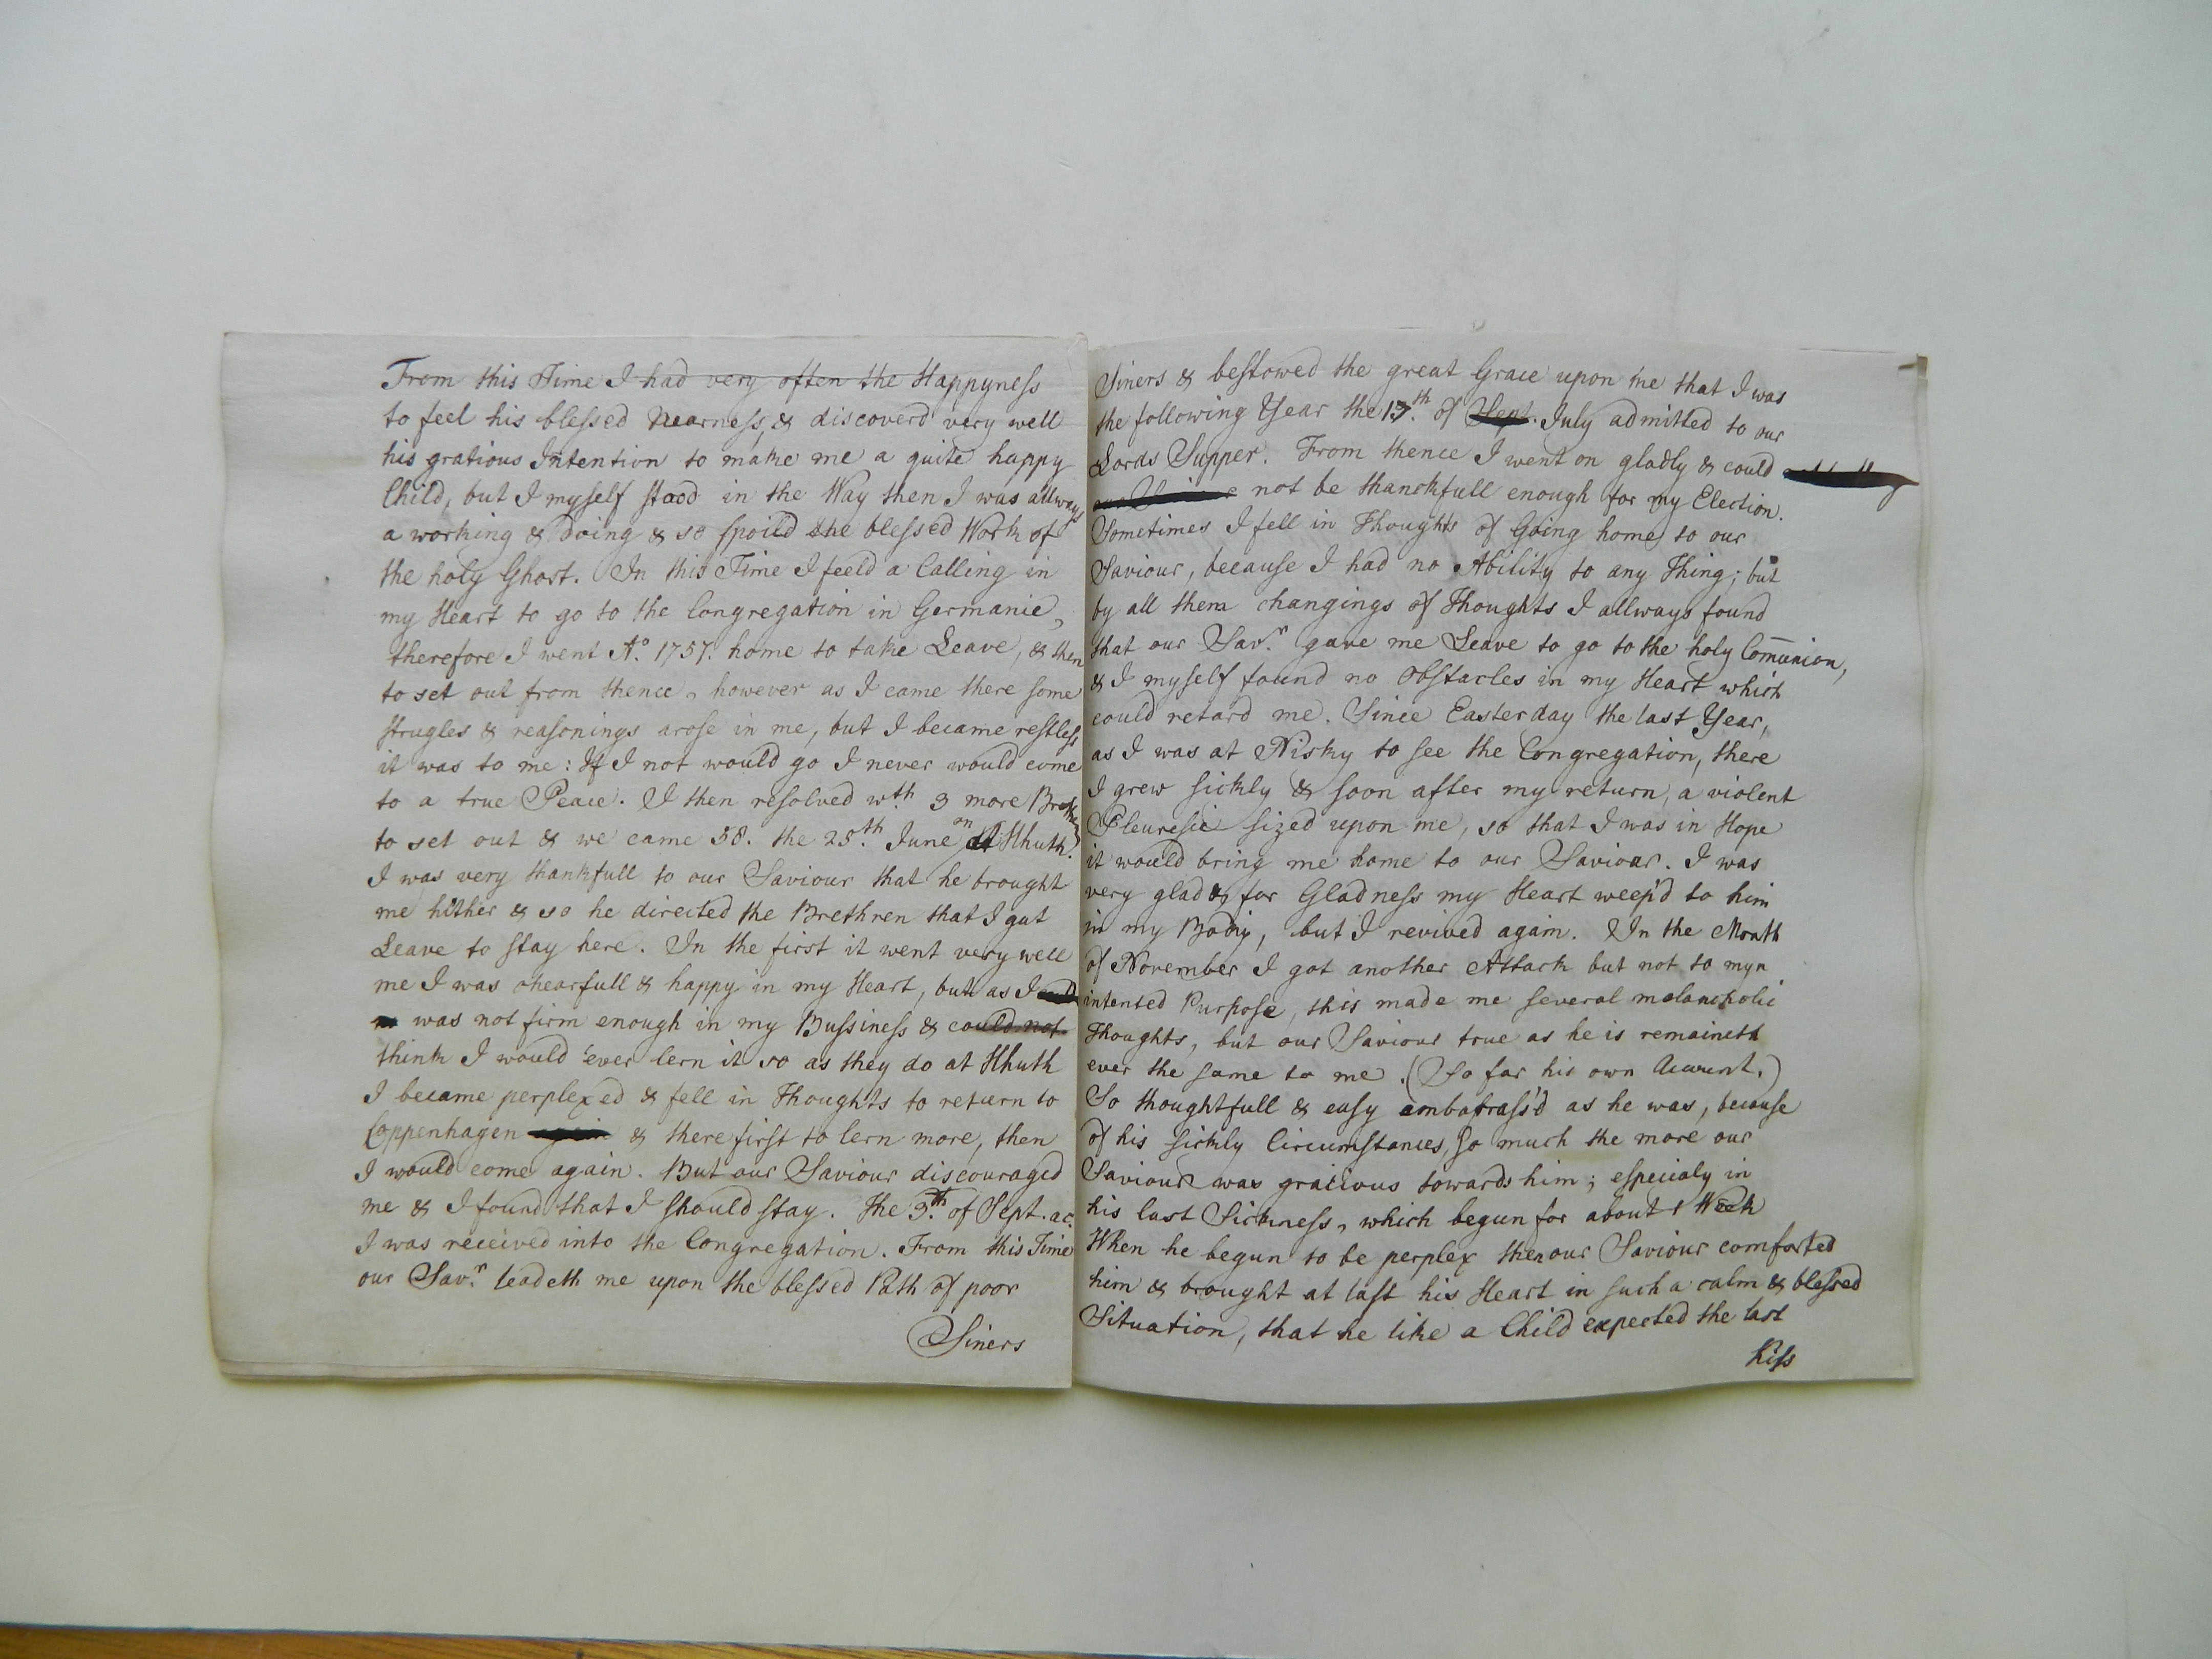 From this Time I had very often the Happyness
to feel his blessed Nearness, & discoverd very well
his gratious Intention to make me a quite happy
Child, but I myself stood in the Way then I was allways
a working & doing & so spoild the blessed Work of
the holy Ghost. In this Time I feeld a Calling in
my Heart to go to the Congregation in Germanie,
therefore I went Ao. 1757. home to take Leave, & then
to set out from thence, however as I came there some
strugles & reasonings arose in me, but I became restless
it was to me: If I not would go I never would come
to a true Peace. I then resolved wth 3 more Brethr
to set out & we came 58. the 25th. June in Hhuth.
I was very thankfull to our Saviour that he brought
me hither & so he directed the Brethren that I gut
Leave to stay here. In the first it went very well
me I was chearfull & happy in my Heart, but as I
was not firm enough in my Bussiness & could not
think I would ever lern it so as they do at Hhuth
I became perplexed & fell in Thoughts to return to
Coppenhagen & there first to lern more, then
I would come again. But our Saviour discouraged
me & I found that I should stay. The 3th. of Sept. ac.
I was received into the Congregation. From this Time
our Savr. leadeth me upon the blessed Path of poor
Siners
Siners & bestowed the great Grace upon me that I was
the following Year the 13th. of Sept. July admitted to our
Lords Supper. From thence I went on gladly & could
not be thanckfull enough for my Election.
Sometimes I fell in Thoughts of Going home to our
Saviour, because I had no Ability to any Thing; but
by all them changings of Thoughts I allways found
that our Savr. gave me Leave to go to the holy Com̅union,
& I myself found no Obstacles in my Heart which
could retard me. Since Easterday the last Year,
as I was at Nisky to see the Congregation, there
I grew sickly & soon after my return, a violent
Pleuresie sized upon me, so that I was in Hope
it would bring me home to our Saviour. I was
very glad & for Gladness my Heart weep'd to him
in my Body, but I revived again. In the Month
of November I got another Attack but not to myn
intented Purpose, this made me several melancholic
Thoughts, but our Saviour true as he is remaineth
ever the same to me. (So far his own Account.)
So thoughtfull & easy embarass'd as he was, because
of his sickly Circumstances, so much the more our
Saviour was gracious towards him; especialy in
his last Sickness, which begun for about 1 Week
When he begun to be perplex then our Saviour comforted
him & brought at last his Heart in such a calm & blessed
Situation, that he like a Child expected the last
Kiss